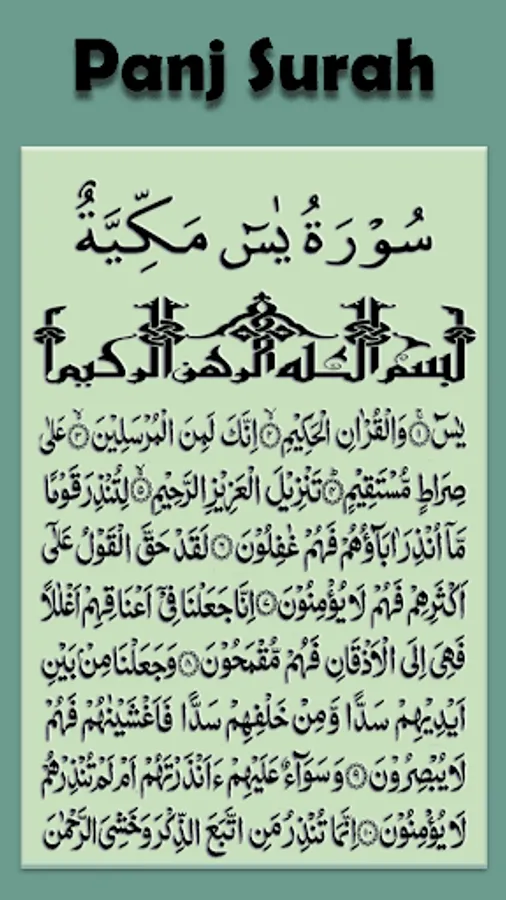 Panj Surah
سُوْرَةُ يٰسٓ مَكِّيَّةٌ
بسم الله الرحمن الرحيم
يٰسٓ ۝١ وَالْقُرْاٰنِ الْحَكِيْمِ ۝٢ اِنَّكَ لَمِنَ الْمُرْسَلِيْنَ ۝٣ عَلٰى
صِرَاطٍ مُّسْتَقِيْمٍ ۝٤ تَنْزِيْلَ الْعَزِيْزِ الرَّحِيْمِ ۝٥ لِتُنْذِرَ قَوْمًا
مَّاۤ اُنْذِرَ اٰبَآؤُهُمْ فَهُمْ غٰفِلُوْنَ ۝٦ لَقَدْ حَقَّ الْقَوْلُ عَلٰٓى
اَكْثَرِهِمْ فَهُمْ لَا يُؤْمِنُوْنَ ۝٧ اِنَّا جَعَلْنَا فِيْۤ اَعْنَاقِهِمْ اَغْلٰلًا
فَهِيَ اِلَى الْاَذْقَانِ فَهُمْ مُّقْمَحُوْنَ ۝٨ وَجَعَلْنَا مِنْۢ بَيْنِ
اَيْدِيْهِمْ سَدًّا وَّمِنْ خَلْفِهِمْ سَدًّا فَاَغْشَيْنٰهُمْ فَهُمْ
لَا يُبْصِرُوْنَ ۝٩ وَسَوَآءٌ عَلَيْهِمْ ءَاَنْذَرْتَهُمْ اَمْ لَمْ تُنْذِرْهُمْ
لَا يُؤْمِنُوْنَ ۝١٠ اِنَّمَا تُنْذِرُ مَنِ اتَّبَعَ الذِّكْرَ وَخَشِيَ الرَّحْمٰنَ